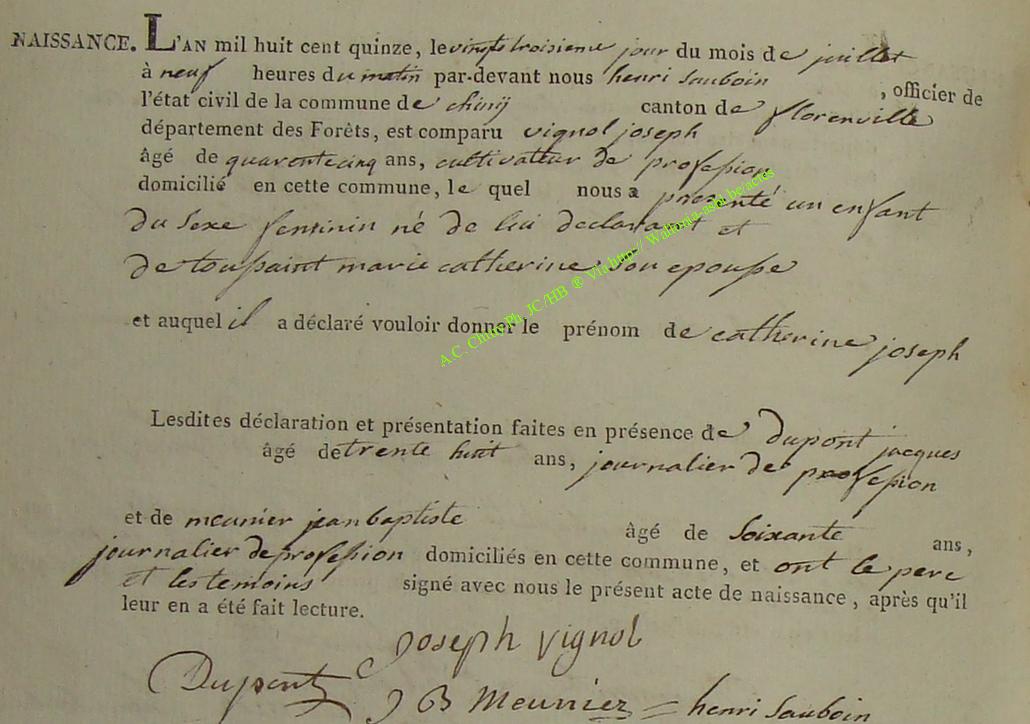 NAISSANCE. L'AN mil huit cent quinze, le vingt troisieme jour du mois de juillet
à neuf heures du matin par-devant nous henri sauboin , officier de
l'état civil de la commune de chinÿ canton de florenville
département des Forêts, est comparu vignol joseph
âgé de quarentecinq ans, cultivateur de profession
domicilié en cette commune, le quel nous a presenté un enfant
du sexe feminin né de lui declarant et
de toussaint marie catherine son epouse
et auquel il a déclaré vouloir donner le prénom de catherine joseph
Lesdites déclaration et présentation faites en présence de dupont jacques
âgé de trente huit ans, journalier de profession
et de meunier jean baptiste âgé de soixante ans,
journalier de profession domiciliés en cette commune, et ont le pere
et les temoins signé avec nous le présent acte de naissance, après qu'il
leur en a été fait lecture.
joseph vignol
Dupont J B Meunier henri sauboin
A.C. Chiny Ph. JC/HB ® via http:// Wallonia-asbl.be/actes